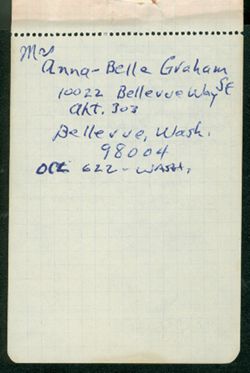 Mrs
Anna-Belle Graham
10022 Bellevue Way SE
Apt. 303
Bellevue, Wash.
98004
622 - WASH.